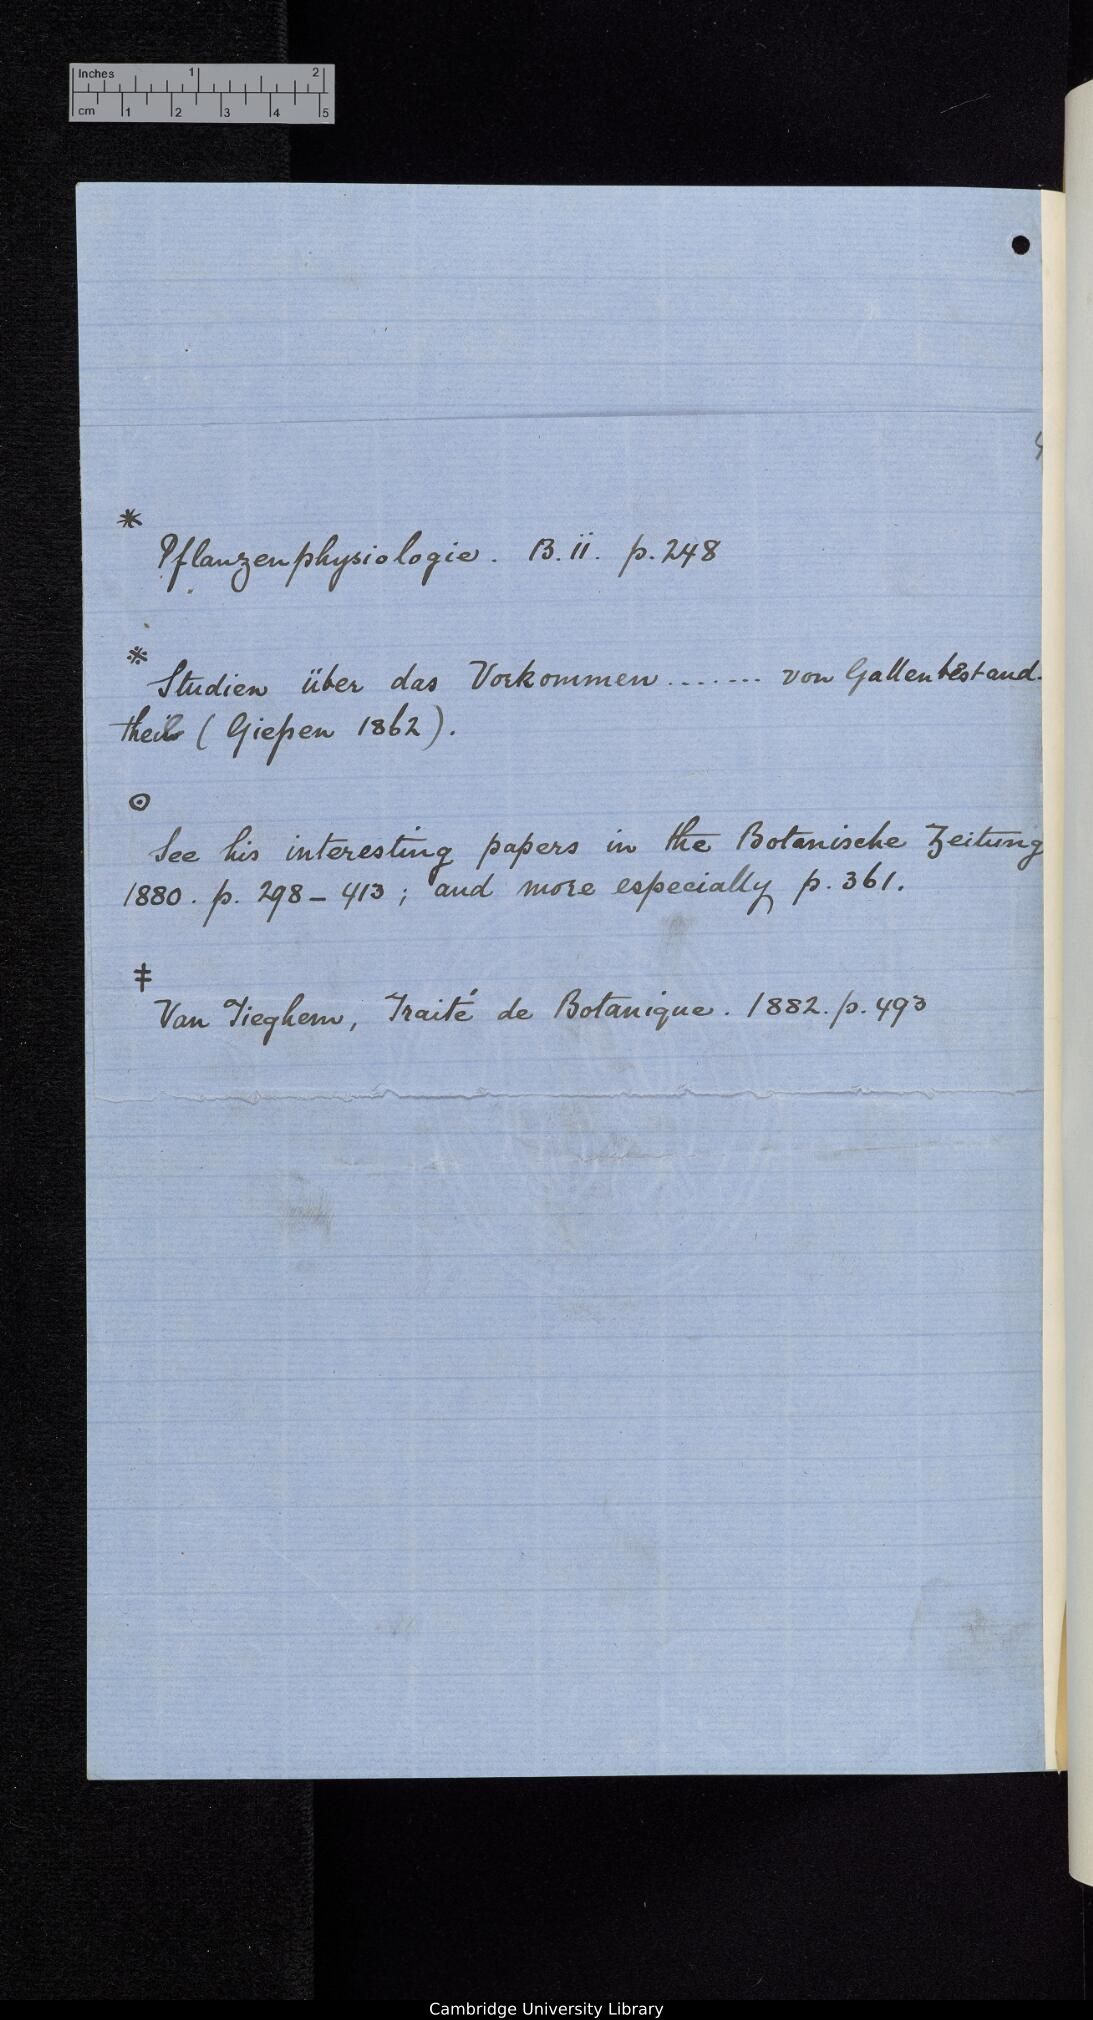 Inches 1 2
cm 1 2 3 4 5
*
Pflanzenphysiologie. B. ii. p. 248
※ Studien über das Vorkommen ....... von Gallenbestand-
theil (Gießen 1862).
⊙
See his interesting papers in the Botanische Zeitung
1880. p. 298 – 413; and more especially p. 361.
‡
Van Tieghem, Traité de Botanique. 1882. p. 493
Cambridge University Library